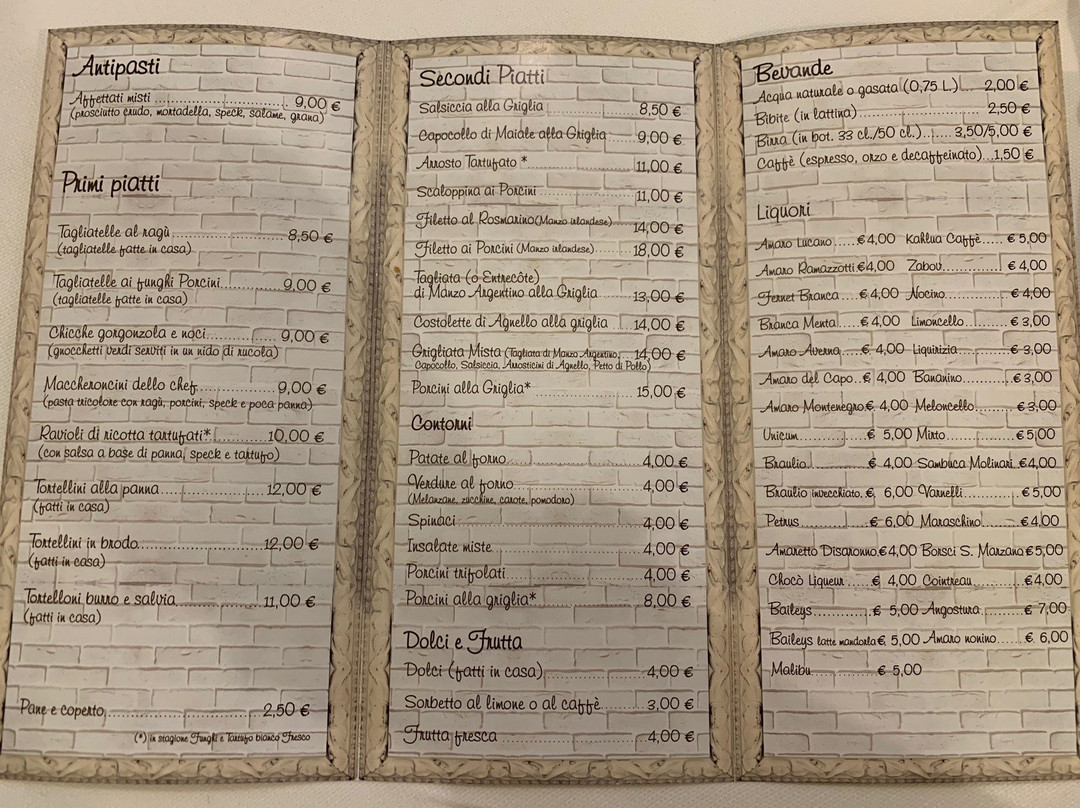 Antipasti
Affettati misti ................................ 9,00 €
(prosciutto crudo, mortadella, speck, salame, grana)
Primi piatti
Tagliatelle al ragù ........................... 8,50 €
(tagliatelle fatte in casa)
Tagliatelle ai funghi Porcini............. 9,00 €
(tagliatelle fatte in casa)
Chicche gorgonzola e noci............... 9,00 €
(gnocchetti verdi serviti in un nido di rucola)
Maccheroncini dello chef................ 9,00 €
(pasta tricolore con ragù, porcini, speck e poca panna)
Ravioli di ricotta tartufati* ............ 10,00 €
(con salsa a base di panna, speck e tartufo)
Tortellini alla panna...................... 12,00 €
(fatti in casa)
Tortellini in brodo.......................... 12,00 €
(fatti in casa)
Tortelloni burro e salvia.................. 11,00 €
(fatti in casa)
Pane e coperto................................ 2,50 €
(*) in stagione Funghi e Tartufo bianco Fresco
Secondi Piatti
Salsiccia alla Griglia .................... 8,50 €
Capocollo di Maiale alla Griglia ...... 9,00 €
Arrosto Tartufato * ...................... 11,00 €
Scaloppina ai Porcini .................... 11,00 €
Filetto al Rosmarino(Manzo irlandese).... 14,00 €
Filetto ai Porcini (Manzo irlandese)........ 18,00 €
Tagliata (o Entrecôte)
di Manzo Argentino alla Griglia ....... 13,00 €
Costolette di Agnello alla griglia .... 14,00 €
Grigliata Mista (Tagliata di Manzo Argentino,... 14,00 €
Capocollo, Salsiccia, Arrosticini di Agnello, Petto di Pollo)
Porcini alla Griglia* ..................... 15,00 €
Contorni
Patate al forno............................ 4,00 €
Verdure al forno........................... 4,00 €
(Melanzane, zucchine, carote, pomodoro)
Spinaci ..................................... 4,00 €
Insalate miste ............................. 4,00 €
Porcini trifolati ........................... 4,00 €
Porcini alla griglia* ...................... 8,00 €
Dolci e Frutta
Dolci (fatti in casa) ..................... 4,00 €
Sorbetto al limone o al caffè.......... 3,00 €
Frutta fresca ............................... 4,00 €
Bevande
Acqua naturale o gasata (0,75 L.)... 2,00 €
Bibite (in lattina)......................... 2,50 €
Birra (in bot. 33 cl./50 cl.)...... 3,50/5,00 €
Caffè (espresso, orzo e decaffeinato)...1,50 €
Liquori
Amaro Lucano .....€ 4,00 Kahlua Caffè..... € 5,00
Amaro Ramazzotti €4,00 Zabov............... € 4,00
Fernet Branca ....€ 4,00 Nocino................ € 4,00
Branca Menta.....€ 4,00 Limoncello........ € 3,00
Amaro Averna....€ 4,00 Liquirizia......... € 3,00
Amaro del Capo..€ 4,00 Bananino.......... € 3,00
Amaro Montenegro€ 4,00 Meloncello........ € 3,00
Unicum..............€ 5,00 Mirto................ €5,00
Braulio..............€ 4,00 Sambuca Molinari..€4,00
Braulio invecchiato.€ 6,00 Varnelli............. € 5,00
Petrus................€ 6,00 Maraschino......... € 4,00
Amaretto Disaronno.€4,00 Borsci S. Marzano €5,00
Chocò Liqueur .....€ 4,00 Cointreau........... €4,00
Baileys..............€ 5,00 Angostura........... € 7,00
Baileys latte mandorla€ 5,00 Amaro nonino...... € 6,00
Malibu................€ 5,00